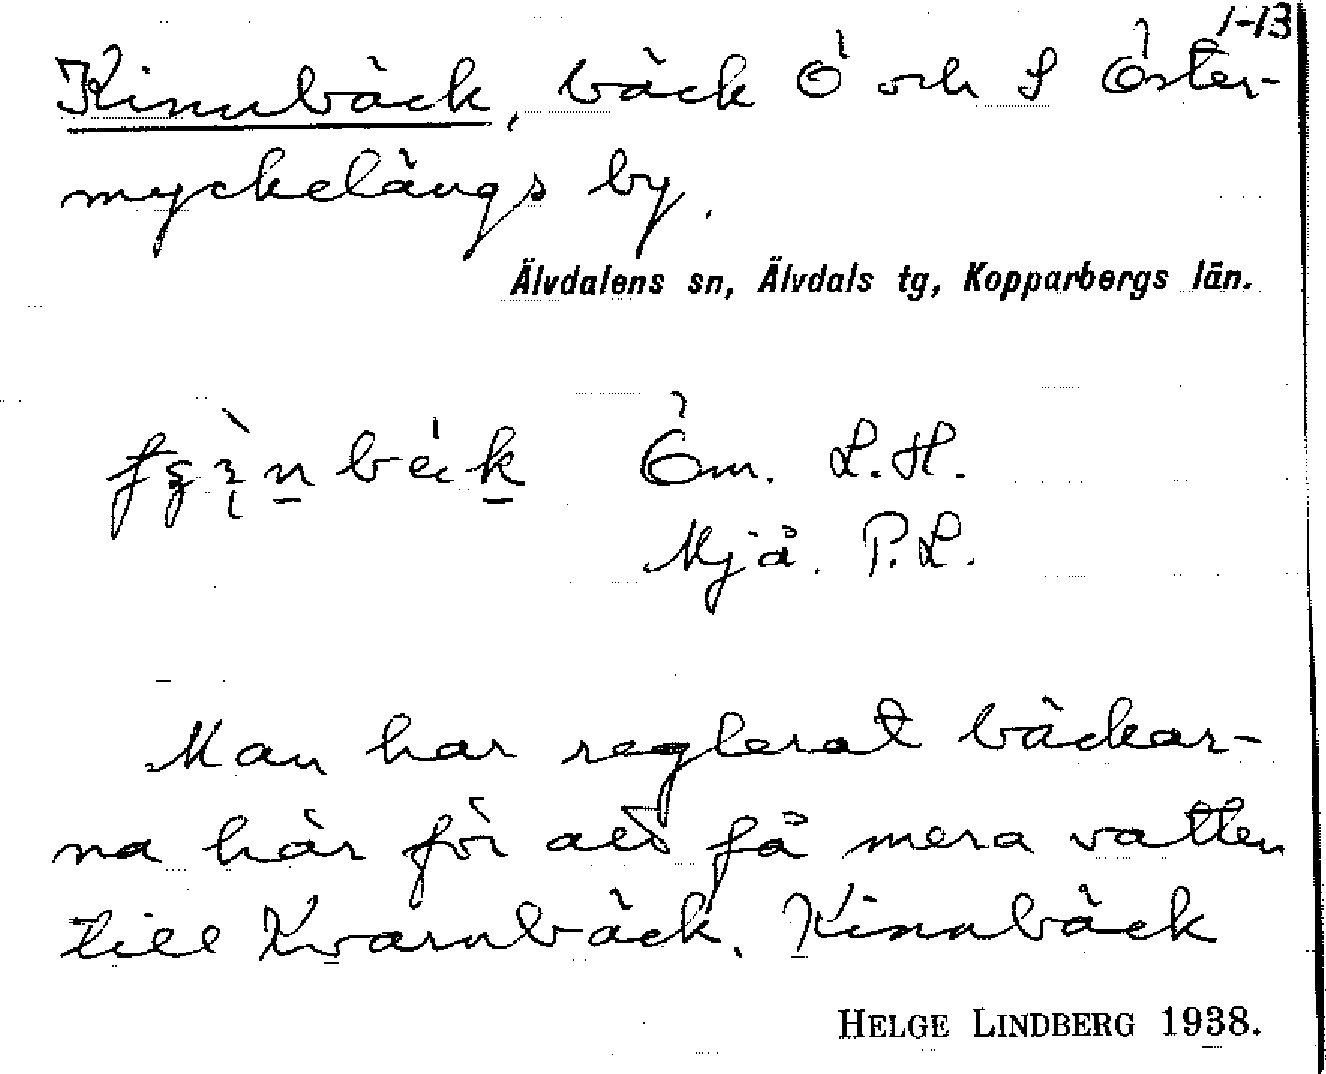 1-13
Kinnbäck, bäck Ö och S Öster-
myckelängs by.
Älvdalens sn, Älvdals tg, Kopparbergs län.
Öm. L.H.
Mjå. P.L.
Man har reglerat bäckar-
na här för att få mera vatten
till Kvarnbäck. Kinnbäck
HELGE LINDBERG 1938.